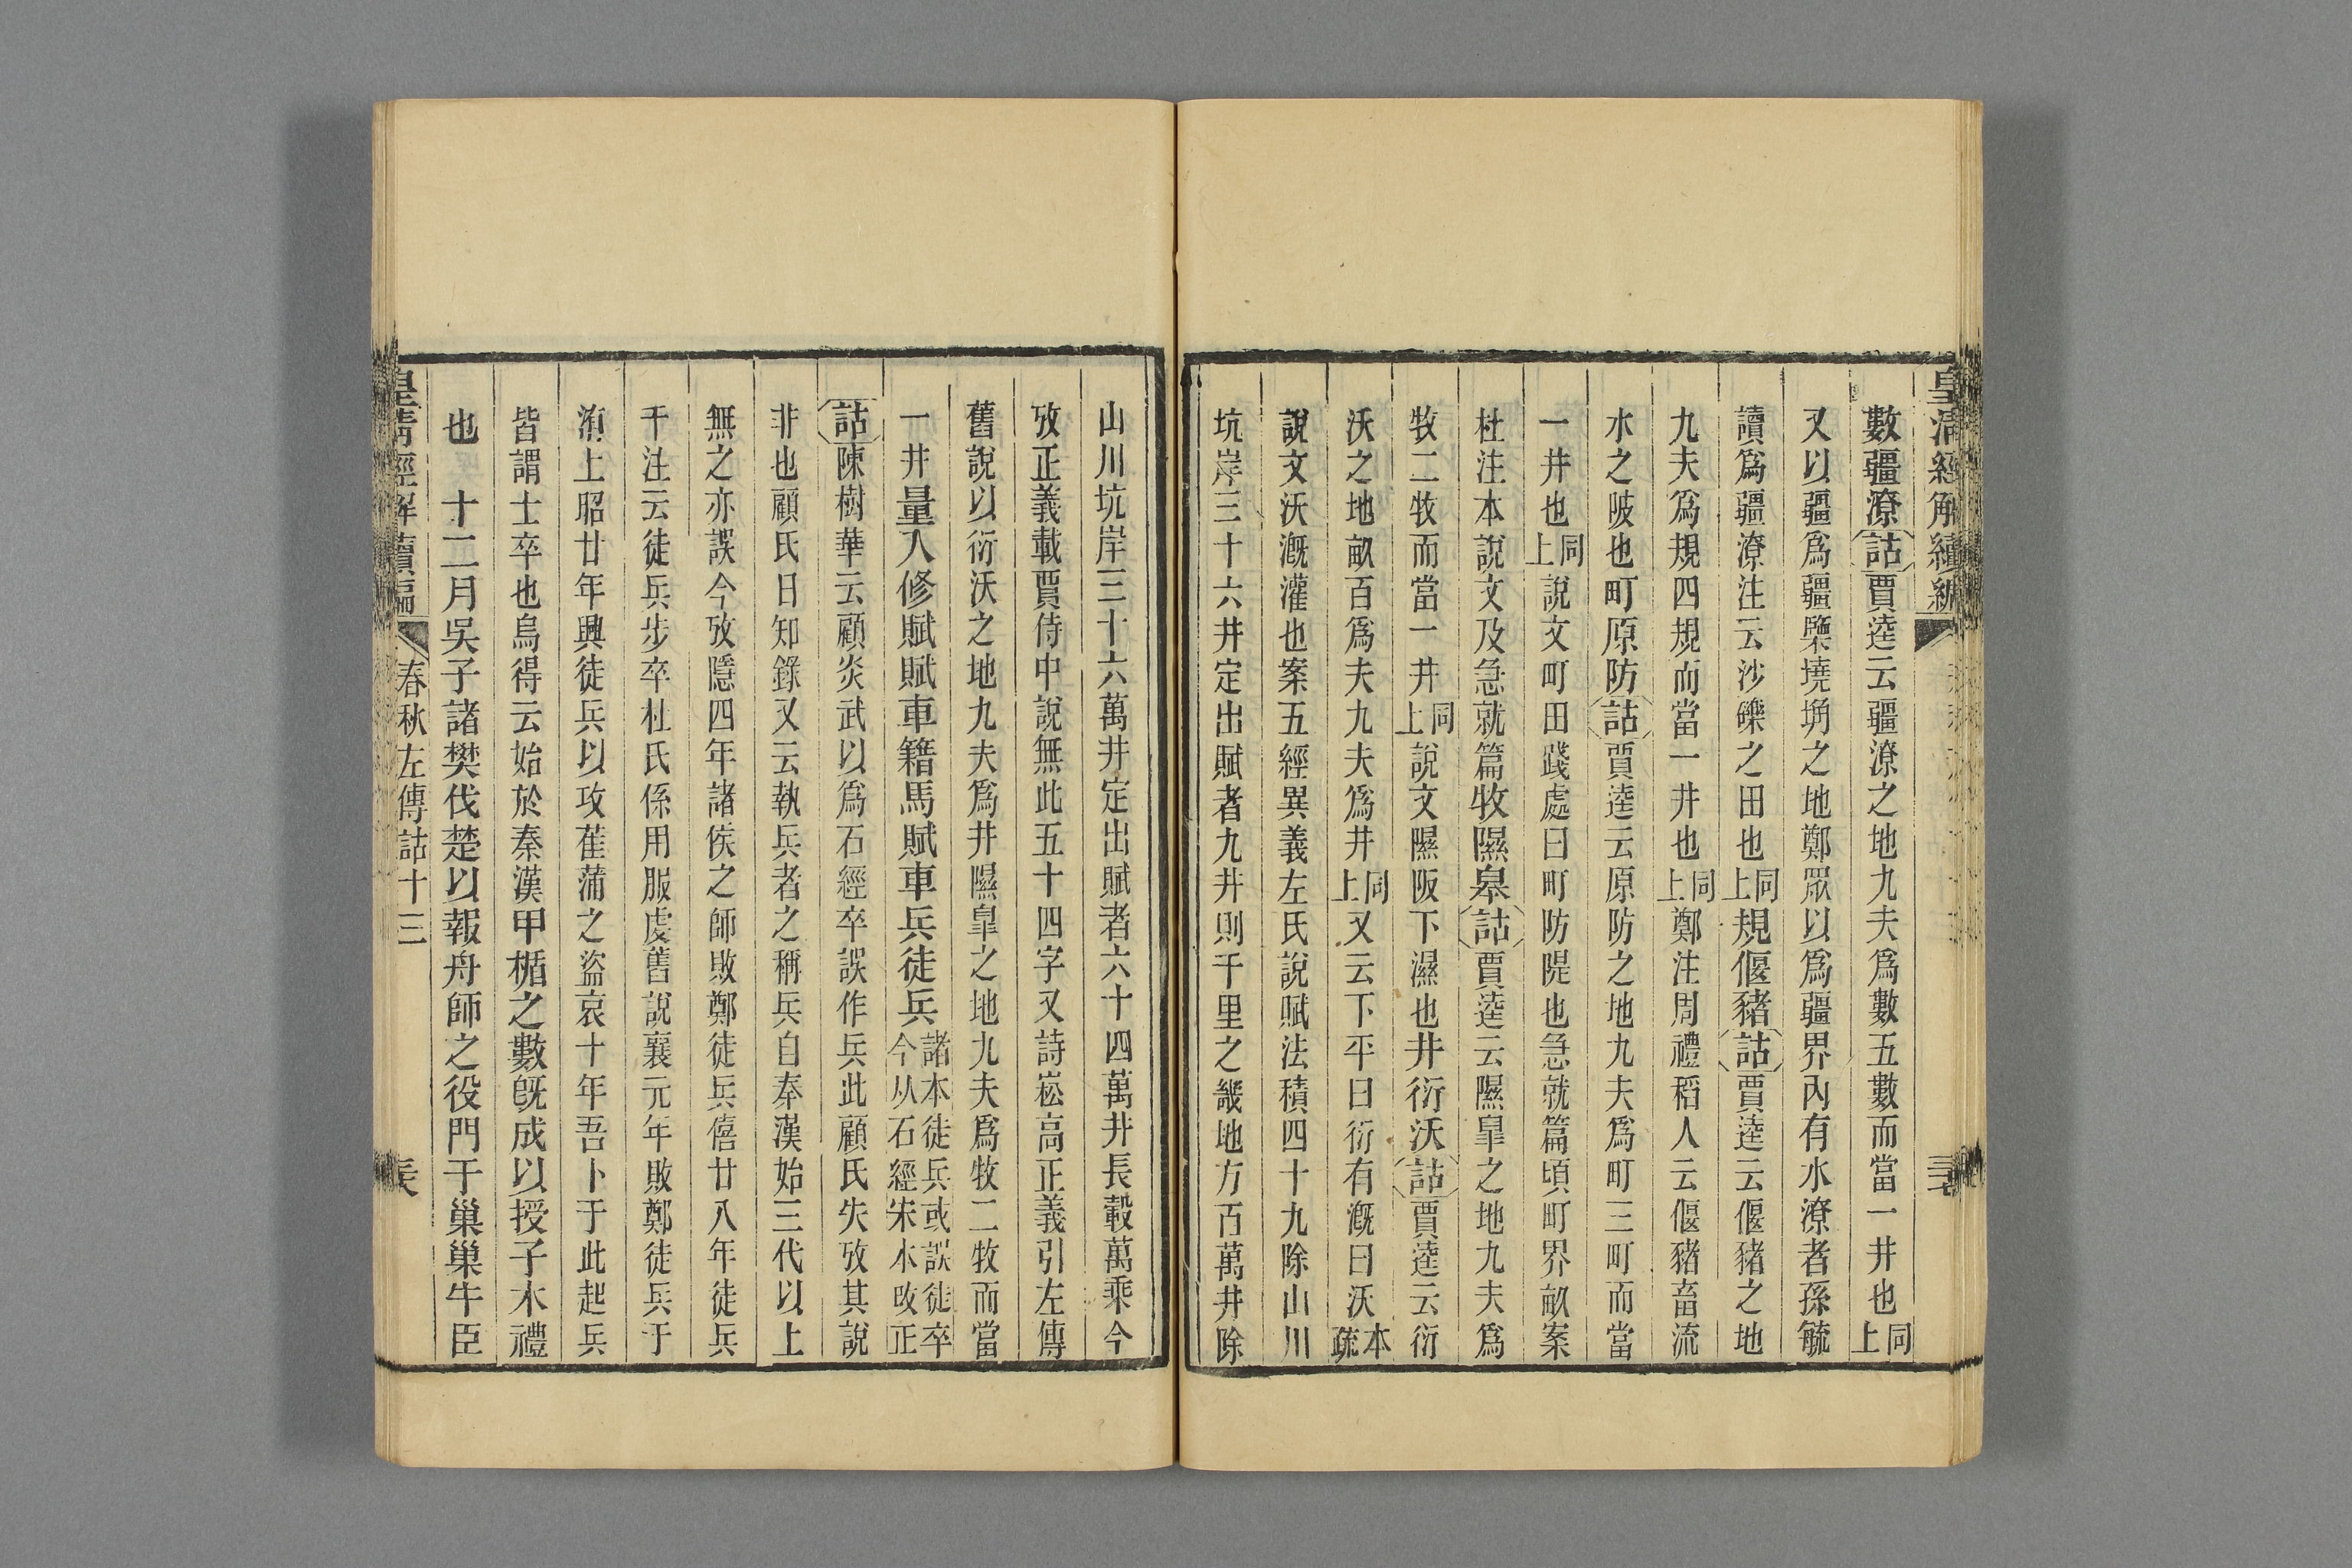 皇清經解續編
數疆潦詁賈逵云疆潦之地九夫爲數五數而當一井也同上
又以疆爲疆檃墝埆之地鄭眾以爲疆界內有水潦者孫毓
讀爲疆潦注云沙礫之田也同上規偃豬詁賈逵云偃豬之地
九夫爲規四規而當一井也同上鄭注周禮稻人云偃豬畜流
水之陂也町原防詁賈逵云原防之地九夫爲町三町而當
一井也同上說文町田踐處曰町防隄也急就篇頃町界畝案
杜注本說文及急就篇牧隰皋詁賈逵云隰皐之地九夫爲
牧二牧而當一井同上說文隰阪下濕也井衍沃詁賈逵云衍
沃之地畝百爲夫九夫爲井同上又云下平曰衍有漑曰沃本疏
說文沃漑灌也案五經異義左氏說賦法積四十九除山川
坑岸三十六井定出賦者九井則千里之畿地方百萬井除
山川坑岸三十六萬井定出賦者六十四萬井長轂萬乘今
攷正義載賈侍中說無此五十四字又詩崧高正義引左傳
舊說以衍沃之地九夫爲井隰皐之地九夫爲牧二牧而當
一井量入修賦賦車籍馬賦車兵徒兵諸本徒兵或誤徒卒今从石經宋本改正
詁陳樹華云顧炎武以爲石經卒誤作兵此顧氏失攷其說
非也顧氏日知錄又云執兵者之稱兵自奉漢始三代以上
無之亦誤今攷隱四年諸侯之師敗鄭徒兵僖廿八年徒兵
千注云徒兵步卒杜氏係用服虔舊說襄元年敗鄭徒兵于
洧上昭廿年興徒兵以攻萑蒲之盜哀十年吾卜于此起兵
皆謂士卒也烏得云始於秦漢甲楯之數旣成以授子木禮
也　十二月吳子諸樊伐楚以報舟師之役門于巢巢牛臣
皇清經解續編　春秋左傳詁十三